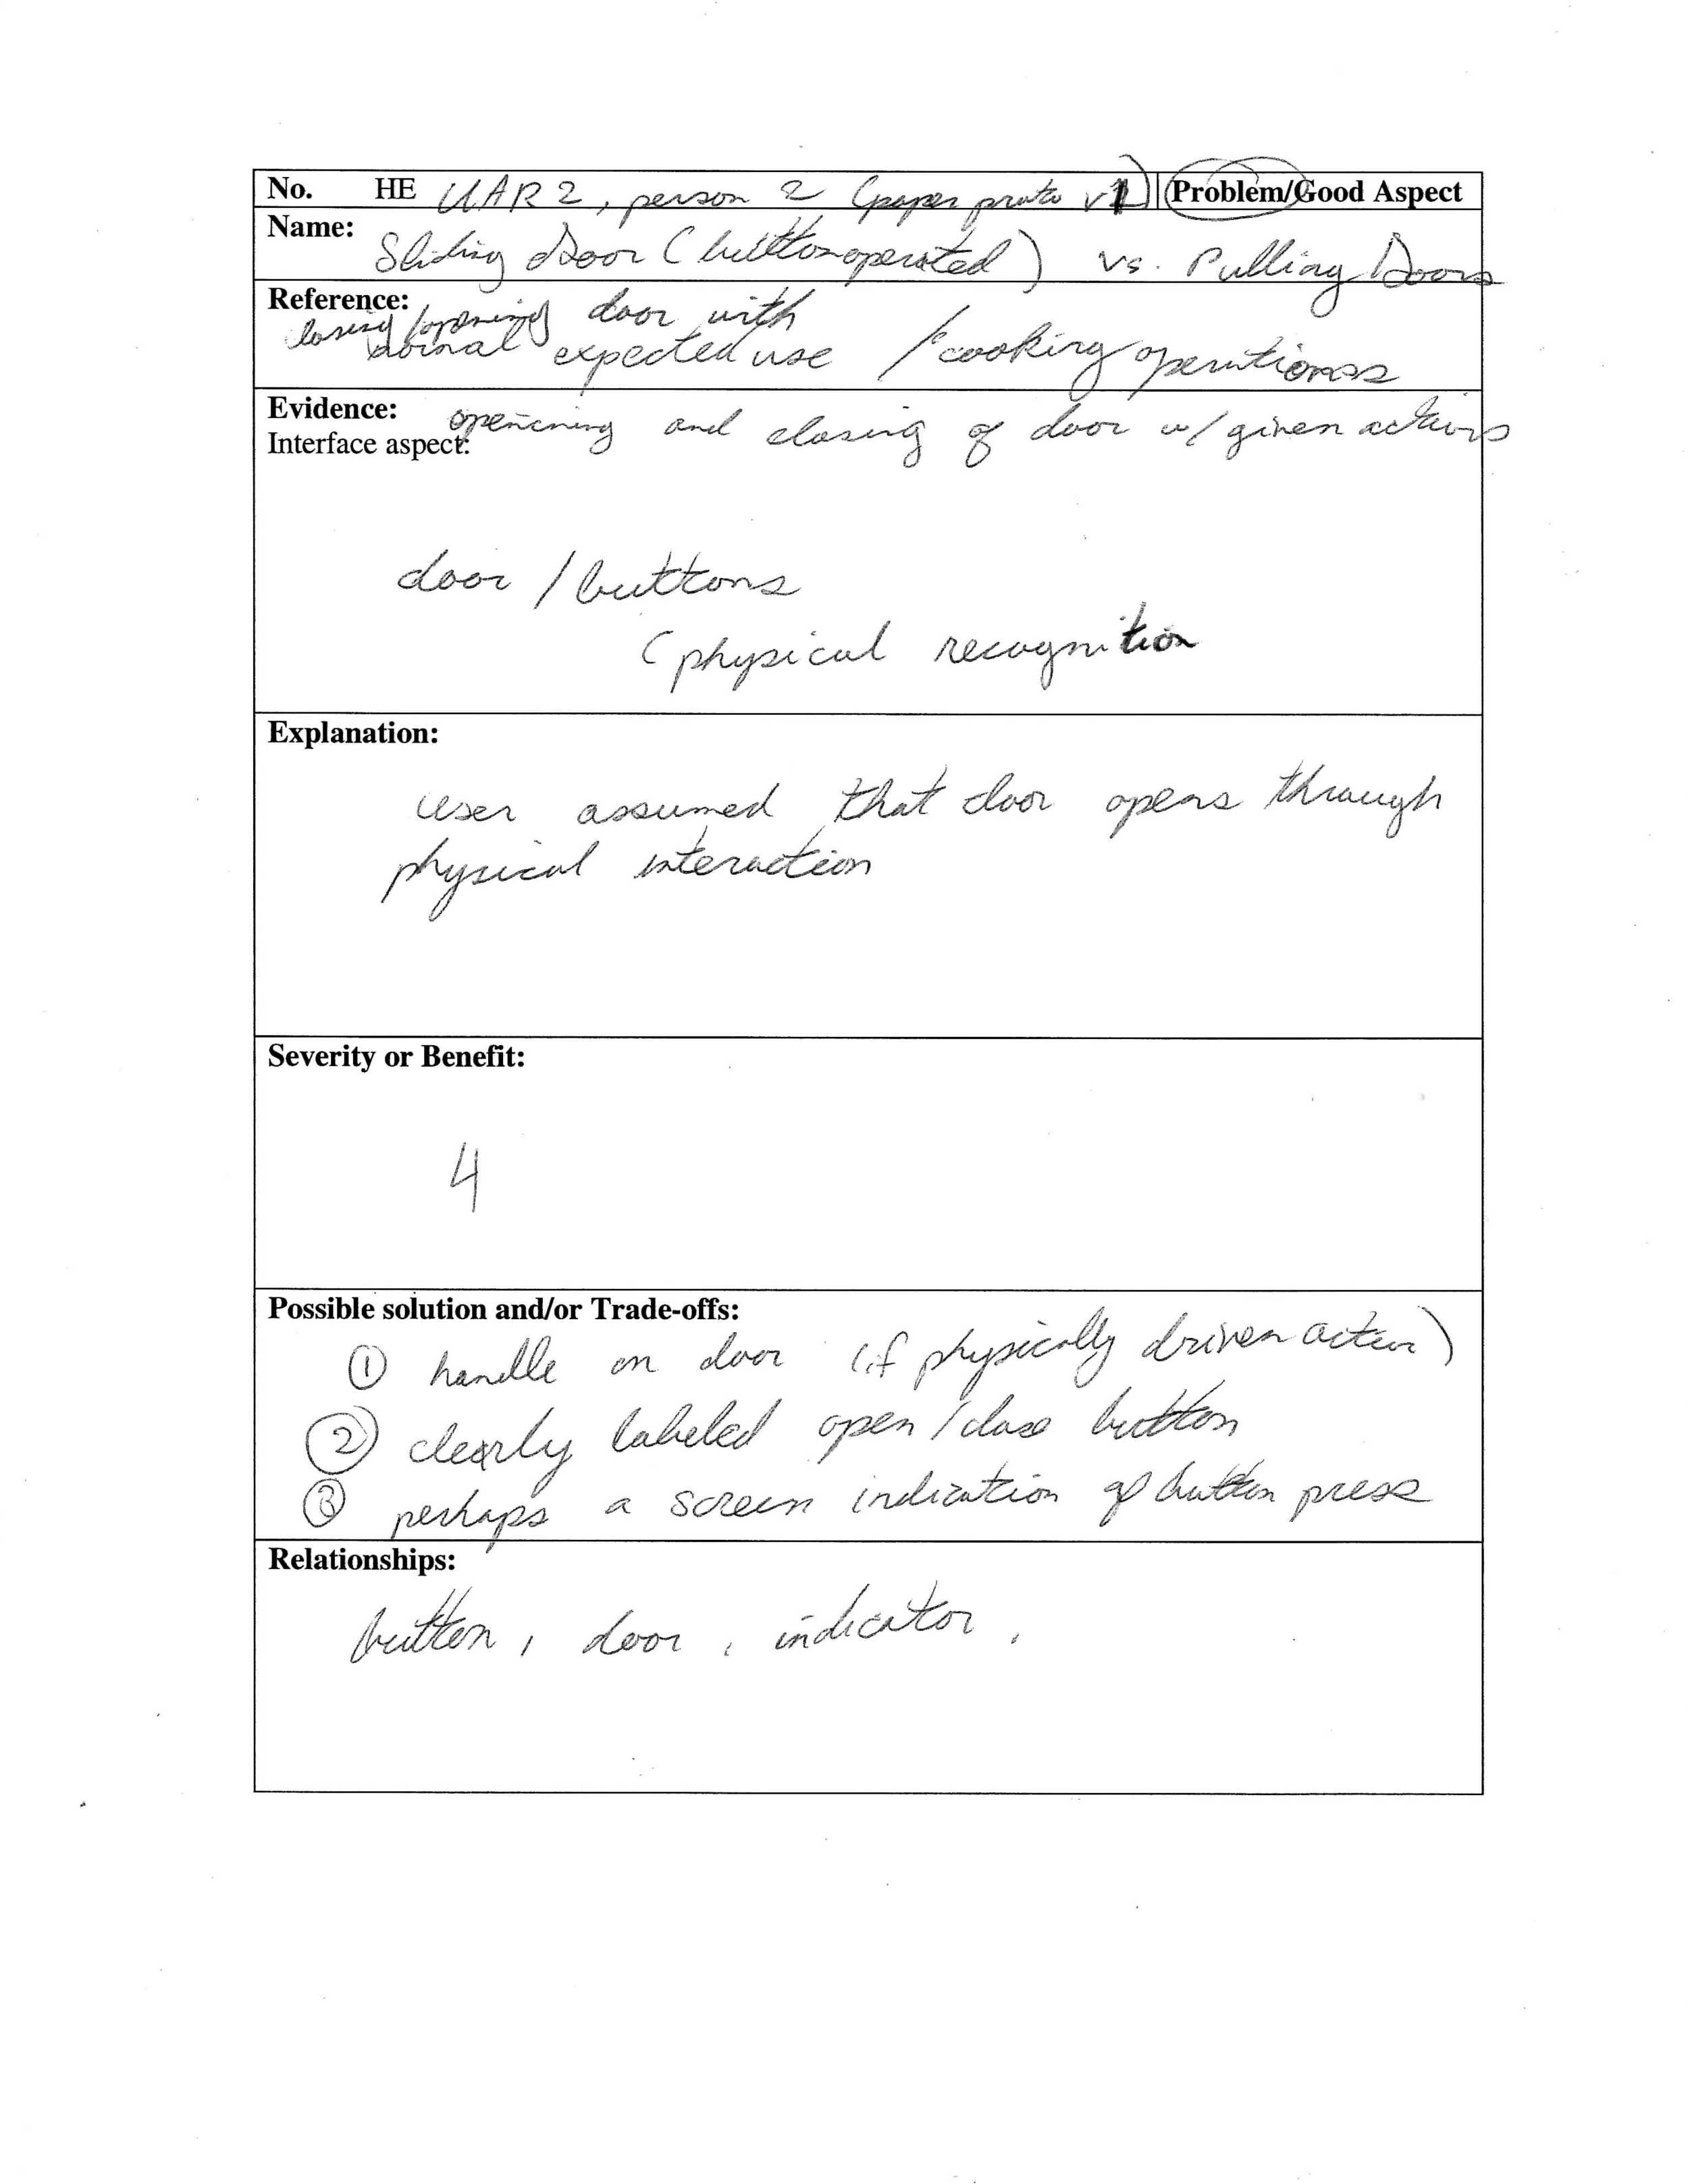 No. HE UAR 2, person 2 (paper proto v1) Problem/Good Aspect
Name:
Sliding door (button operated) vs. Pulling Doors
Reference:
closing/opening door with
normal expected use / cooking operations
Evidence: openening and closing of door w/ given actions
Interface aspect:
door / buttons
(physical recognition
Explanation:
User assumed that door opens through
physical interaction
Severity or Benefit:
4
Possible solution and/or Trade-offs:
① handle on door (if physically driven action)
② clearly labeled open/close button
③ perhaps a screen indication of button press
Relationships:
button, door, indicator,